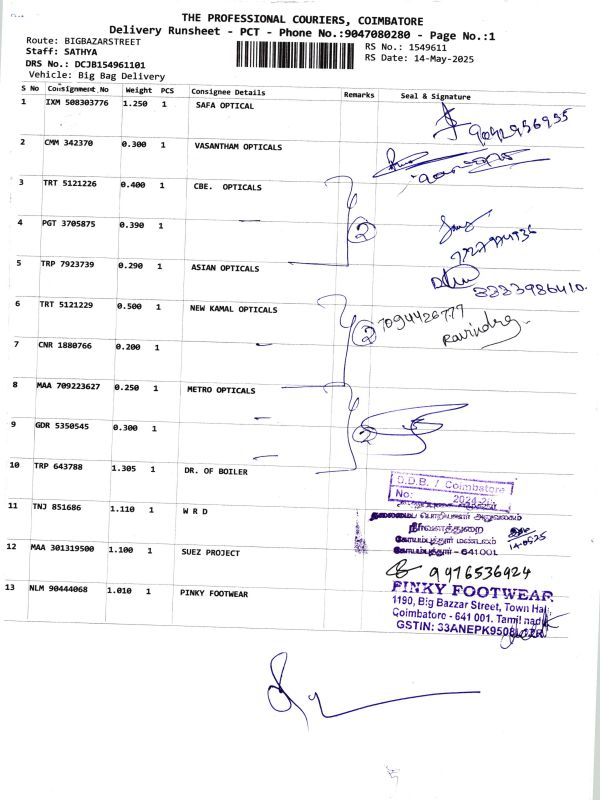 THE PROFESSIONAL COURIERS, COIMBATORE
Delivery Runsheet - PCT - Phone No.:9047080280 - Page No.:1
Route: BIGBAZARSTREET
RS No.: 1549611
Staff: SATHYA
RS Date: 14-May-2025
DRS No.: DCJB154961101
Vehicle: Big Bag Delivery
S No Consignment_No Weight PCS Consignee Details Remarks Seal & Signature
1 IXM 508303776 1.250 1 SAFA OPTICAL
9042956955
2 CMM 342370 0.300 1 VASANTHAM OPTICALS
3 TRT 5121226 0.400 1 CBE. OPTICALS
4 PGT 3705875 0.390 1 —
2
5 TRP 7923739 0.290 1 ASIAN OPTICALS
8883986410.
6 TRT 5121229 0.500 1 NEW KAMAL OPTICALS
2 7094426777
Ravindra
7 CNR 1880766 0.200 1 —
8 MAA 709223627 0.250 1 METRO OPTICALS
9 GDR 5350545 0.300 1 —
2
10 TRP 643788 1.305 1 DR. OF BOILER
D.D.B. / Coimbatore
No: 2024-25
11 TNJ 851686 1.110 1 W R D
தலைமைப் பொறியாளர் அலுவலகம்
நீர்வளத்துறை
கோயம்புத்தூர் மண்டலம்
கோயம்புத்தூர் - 641001
14-05-25
12 MAA 301319500 1.100 1 SUEZ PROJECT
9976536924
13 NLM 90444068 1.010 1 PINKY FOOTWEAR
PINKY FOOTWEAR
1190, Big Bazzar Street, Town Hal
Coimbatore - 641 001. Tamil nadu
GSTIN: 33ANEPK9508